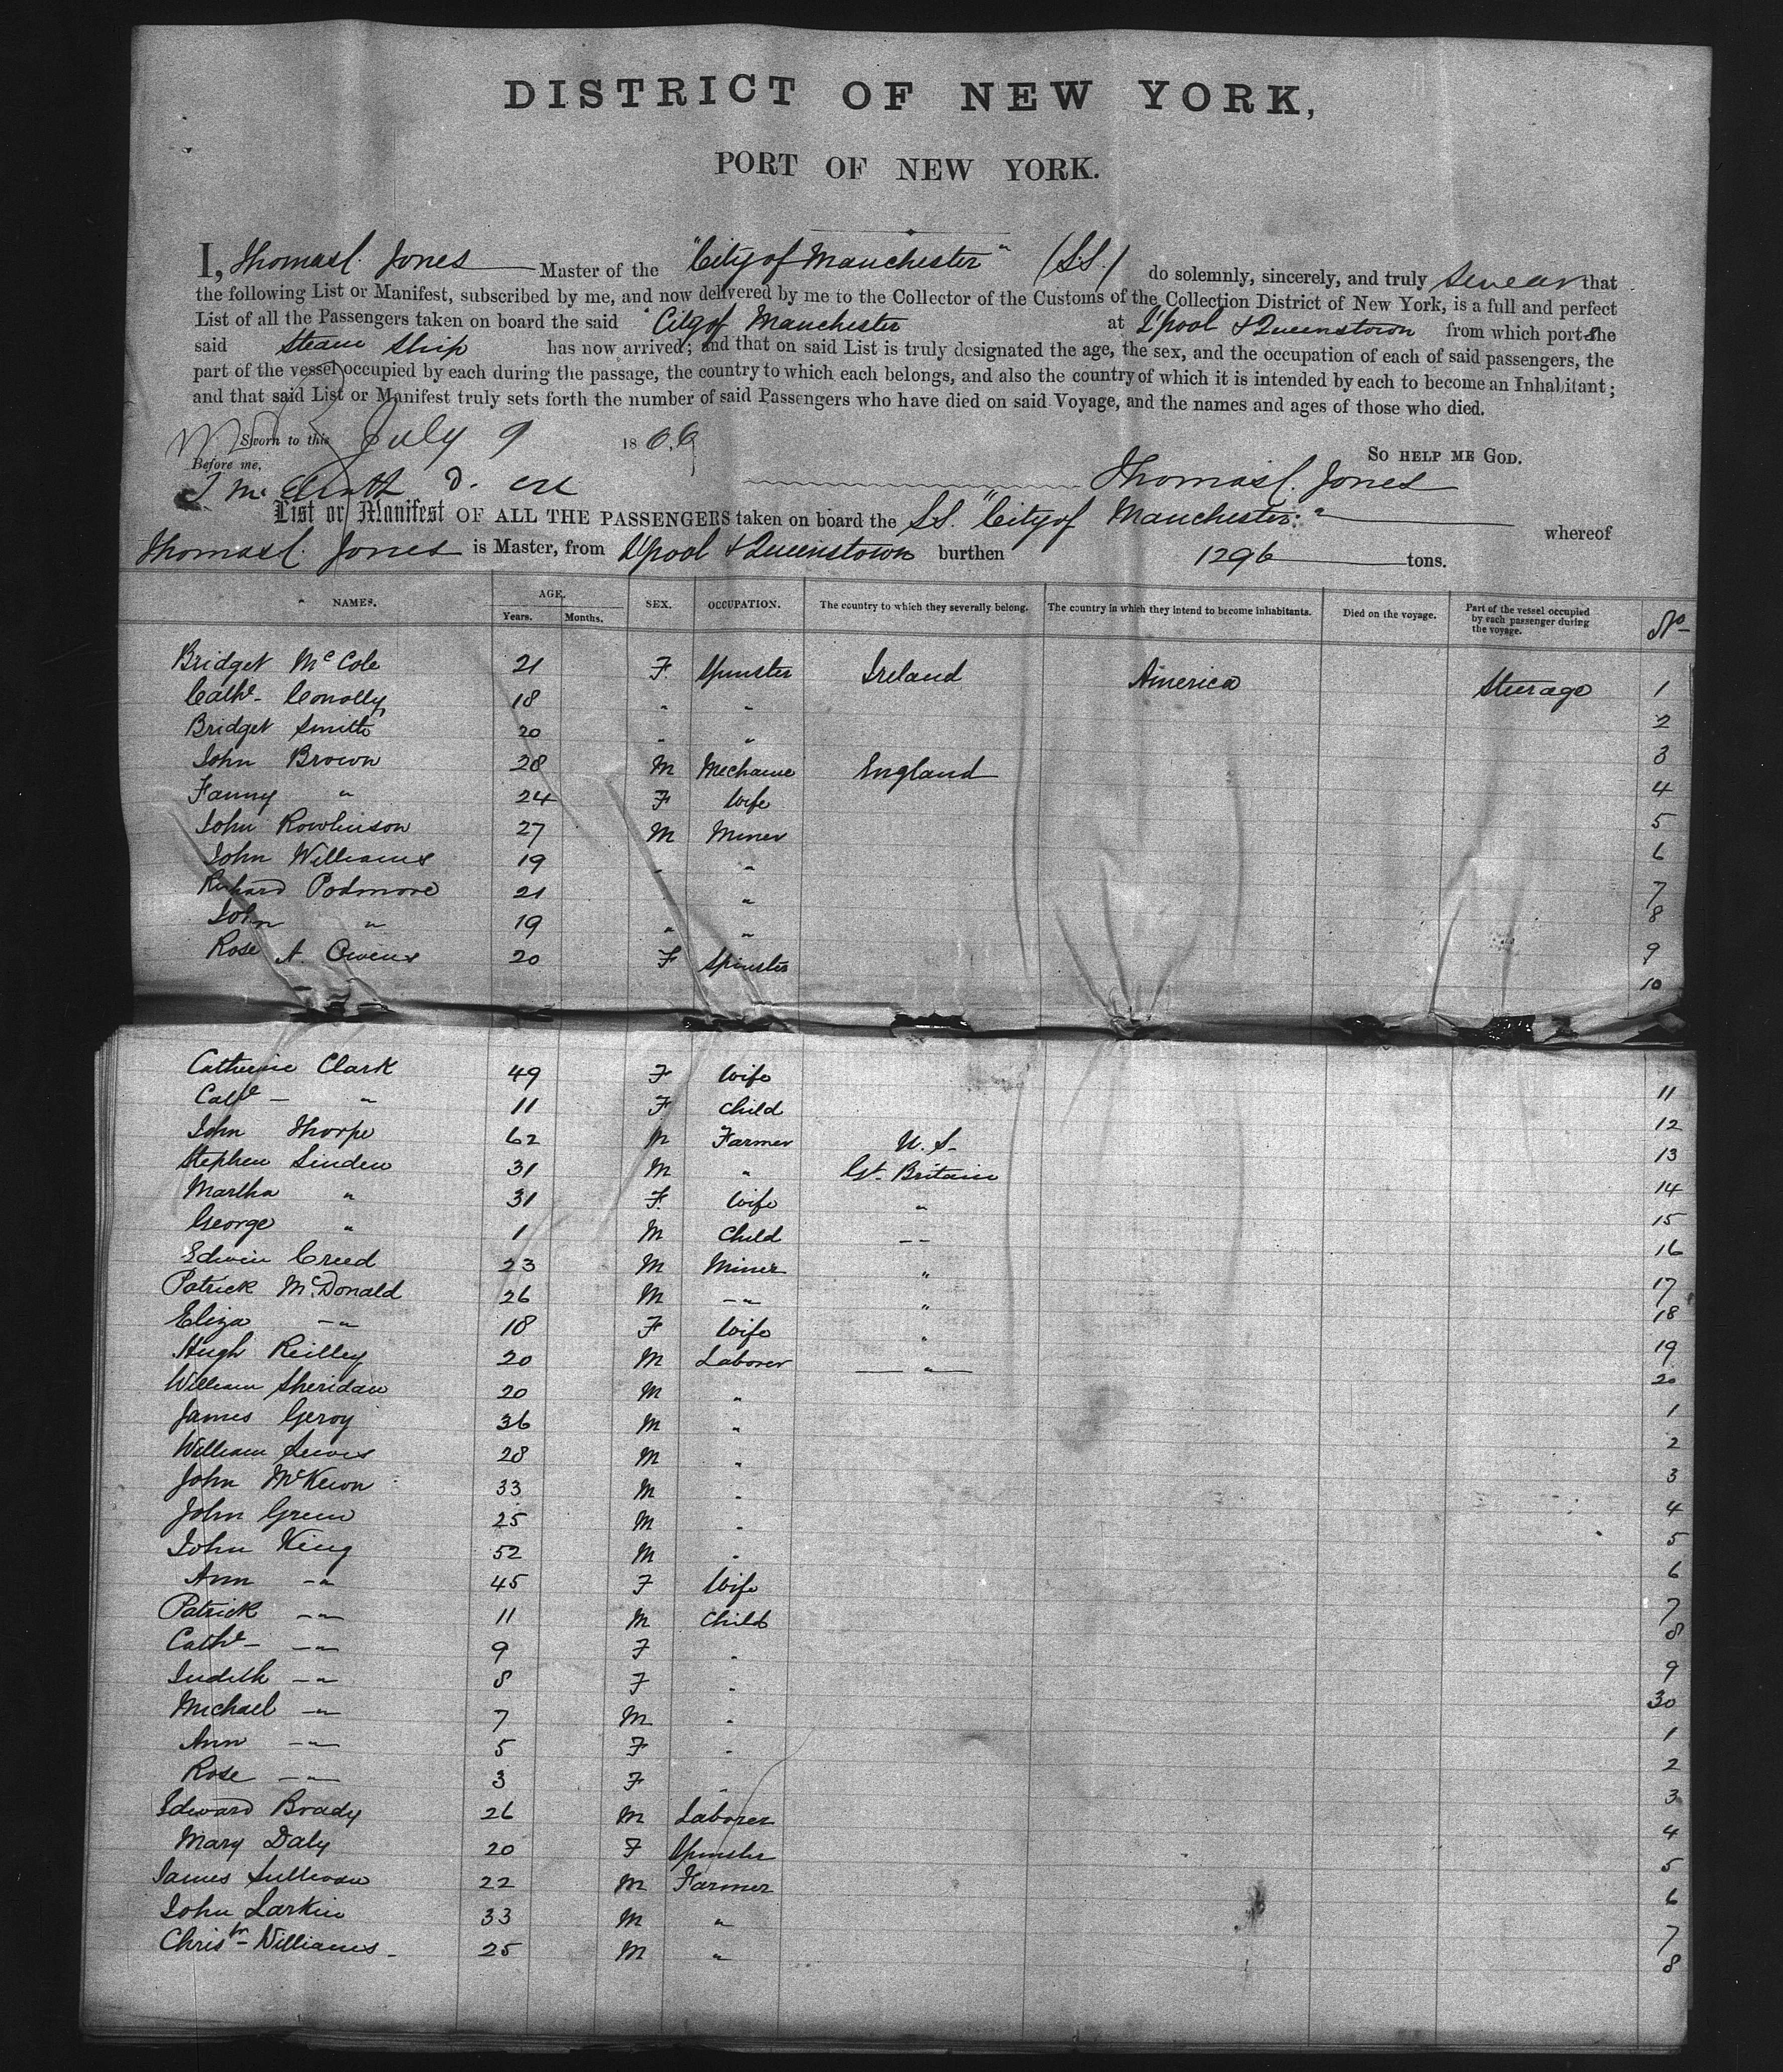 DISTRICT OF NEW YORK,
PORT OF NEW YORK.
I, Thomas C. Jones Master of the "City of Manchester" (SS.) do solemnly, sincerely, and truly swear that
the following List or Manifest, subscribed by me, and now delivered by me to the Collector of the Customs of the Collection District of New York, is a full and perfect
List of all the Passengers taken on board the said City of Manchester at L'pool & Queenstown from which port the
said Steam Ship has now arrived; and that on said List is truly designated the age, the sex, and the occupation of each of said passengers, the
part of the vessel occupied by each during the passage, the country to which each belongs, and also the country of which it is intended by each to become an Inhabitant;
and that said List or Manifest truly sets forth the number of said Passengers who have died on said Voyage, and the names and ages of those who died.
Sworn to this July 9 1866
So HELP ME GOD.
Before me,
Thomas C. Jones
List or Manifest OF ALL THE PASSENGERS taken on board the SS. "City of Manchester" whereof
Thomas C. Jones is Master, from L'pool & Queenstown burthen 1296 tons.
NAMES. AGE. Years. Months. SEX. OCCUPATION. The country to which they severally belong. The country in which they intend to become inhabitants. Died on the voyage. Part of the vessel occupied by each passenger during the voyage. No
Bridget McCole 21 F Spinster Ireland America Steerage 1
Cathe Conolly 18 " " 2
Bridget Smith 20 " " 3
John Brown 28 M Mechanic England 4
Fanny " 24 F Wife 5
John Rowlinson 27 M Miner 6
John Williams 19 " " 7
Richard Podmore 21 " " 8
John " 19 " " 9
Rose A. Owens 20 F Spinster 10
Catherine Clark 49 F Wife 11
Cathe - " 11 F Child 12
John Thorpe 62 M Farmer U. S. 13
Stephen Linden 31 M " Gt. Britain 14
Martha " 31 F. Wife " 15
George " 1 M Child -- 16
Edwin Creed 23 M Miner " 17
Patrick McDonald 26 M -"- " 18
Eliza -"- 18 F Wife " 19
Hugh Reilley 20 M Laborer " 20
William Sheridan 20 M " 1
James Geroy 36 M " 2
William Lewis 28 M " 3
John McKeon 33 M " 4
John Green 25 M " 5
John King 52 M " 6
Ann -"- 45 F Wife 7
Patrick -"- 11 M Child 8
Cathe -"- 9 F " 9
Judith -"- 8 F " 30
Michael -"- 7 M " 1
Ann -"- 5 F " 2
Rose -"- 3 F " 3
Edward Brady 26 M Laborer 4
Mary Daly 20 F Spinster 5
James Sullivan 22 M Farmer 6
John Larkin 33 M " 7
Christr Williams 25 M " 8